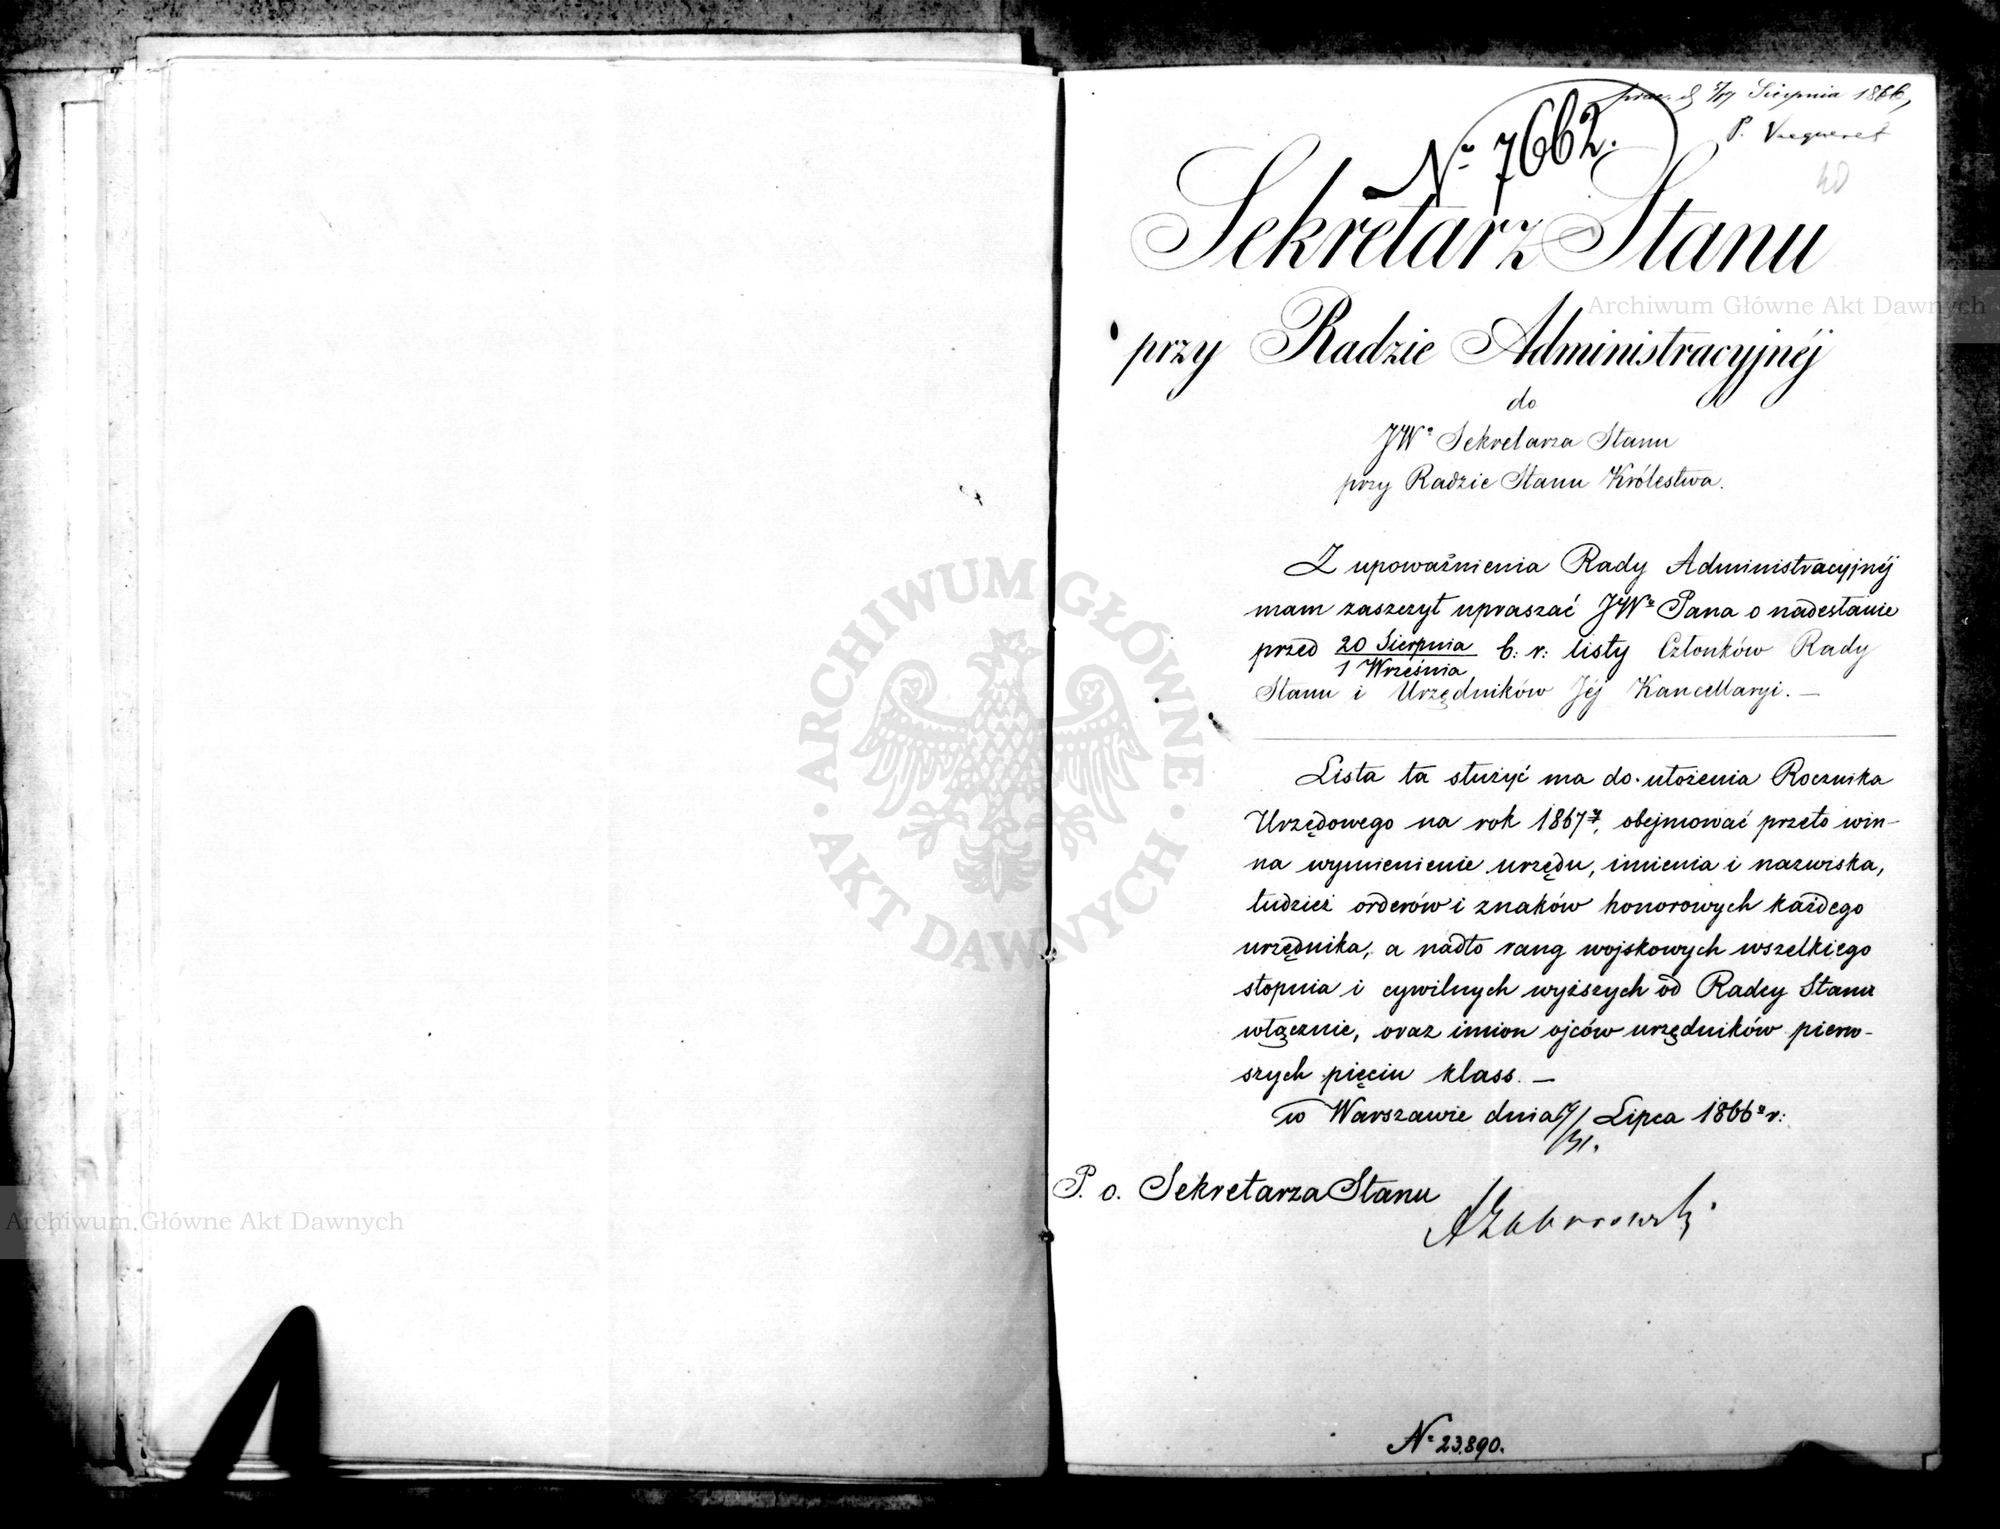 Sierpnia 1866
P.
40
№ 7662.
Sekretarz Stanu
przy Radzie Administracyjnéj
do
JWo Sekretarza Stanu
przy Radzie Stanu Królestwa.
Z upoważnienia Rady Administracyjnéj
mam zaszczyt upraszać JWo Pana o nadesłanie
przed 20 Sierpnia / 1 Września b: r: listy Członków Rady
Stanu i Urzędników Jéj Kancellaryi. —
Lista ta służyć ma do ułożenia Rocznika
Urzędowego na rok 1867y, obejmować przeto win-
na wymienienie urzędu, imienia i nazwiska,
tudzież orderów i znaków honorowych każdego
urzędnika, a nadto rang wojskowych wszelkiego
stopnia i cywilnych wyższych od Radcy Stanu
włącznie, oraz imion ojców urzędników pierw-
szych pięciu klass. —
w Warszawie dnia 19/31. Lipca 1866o r:
P. o. Sekretarza Stanu
AZaborowski
№ 23.890.
Archiwum Główne Akt Dawnych
ARCHIWUM GŁÓWNE AKT DAWNYCH
Archiwum Główne Akt Dawnych